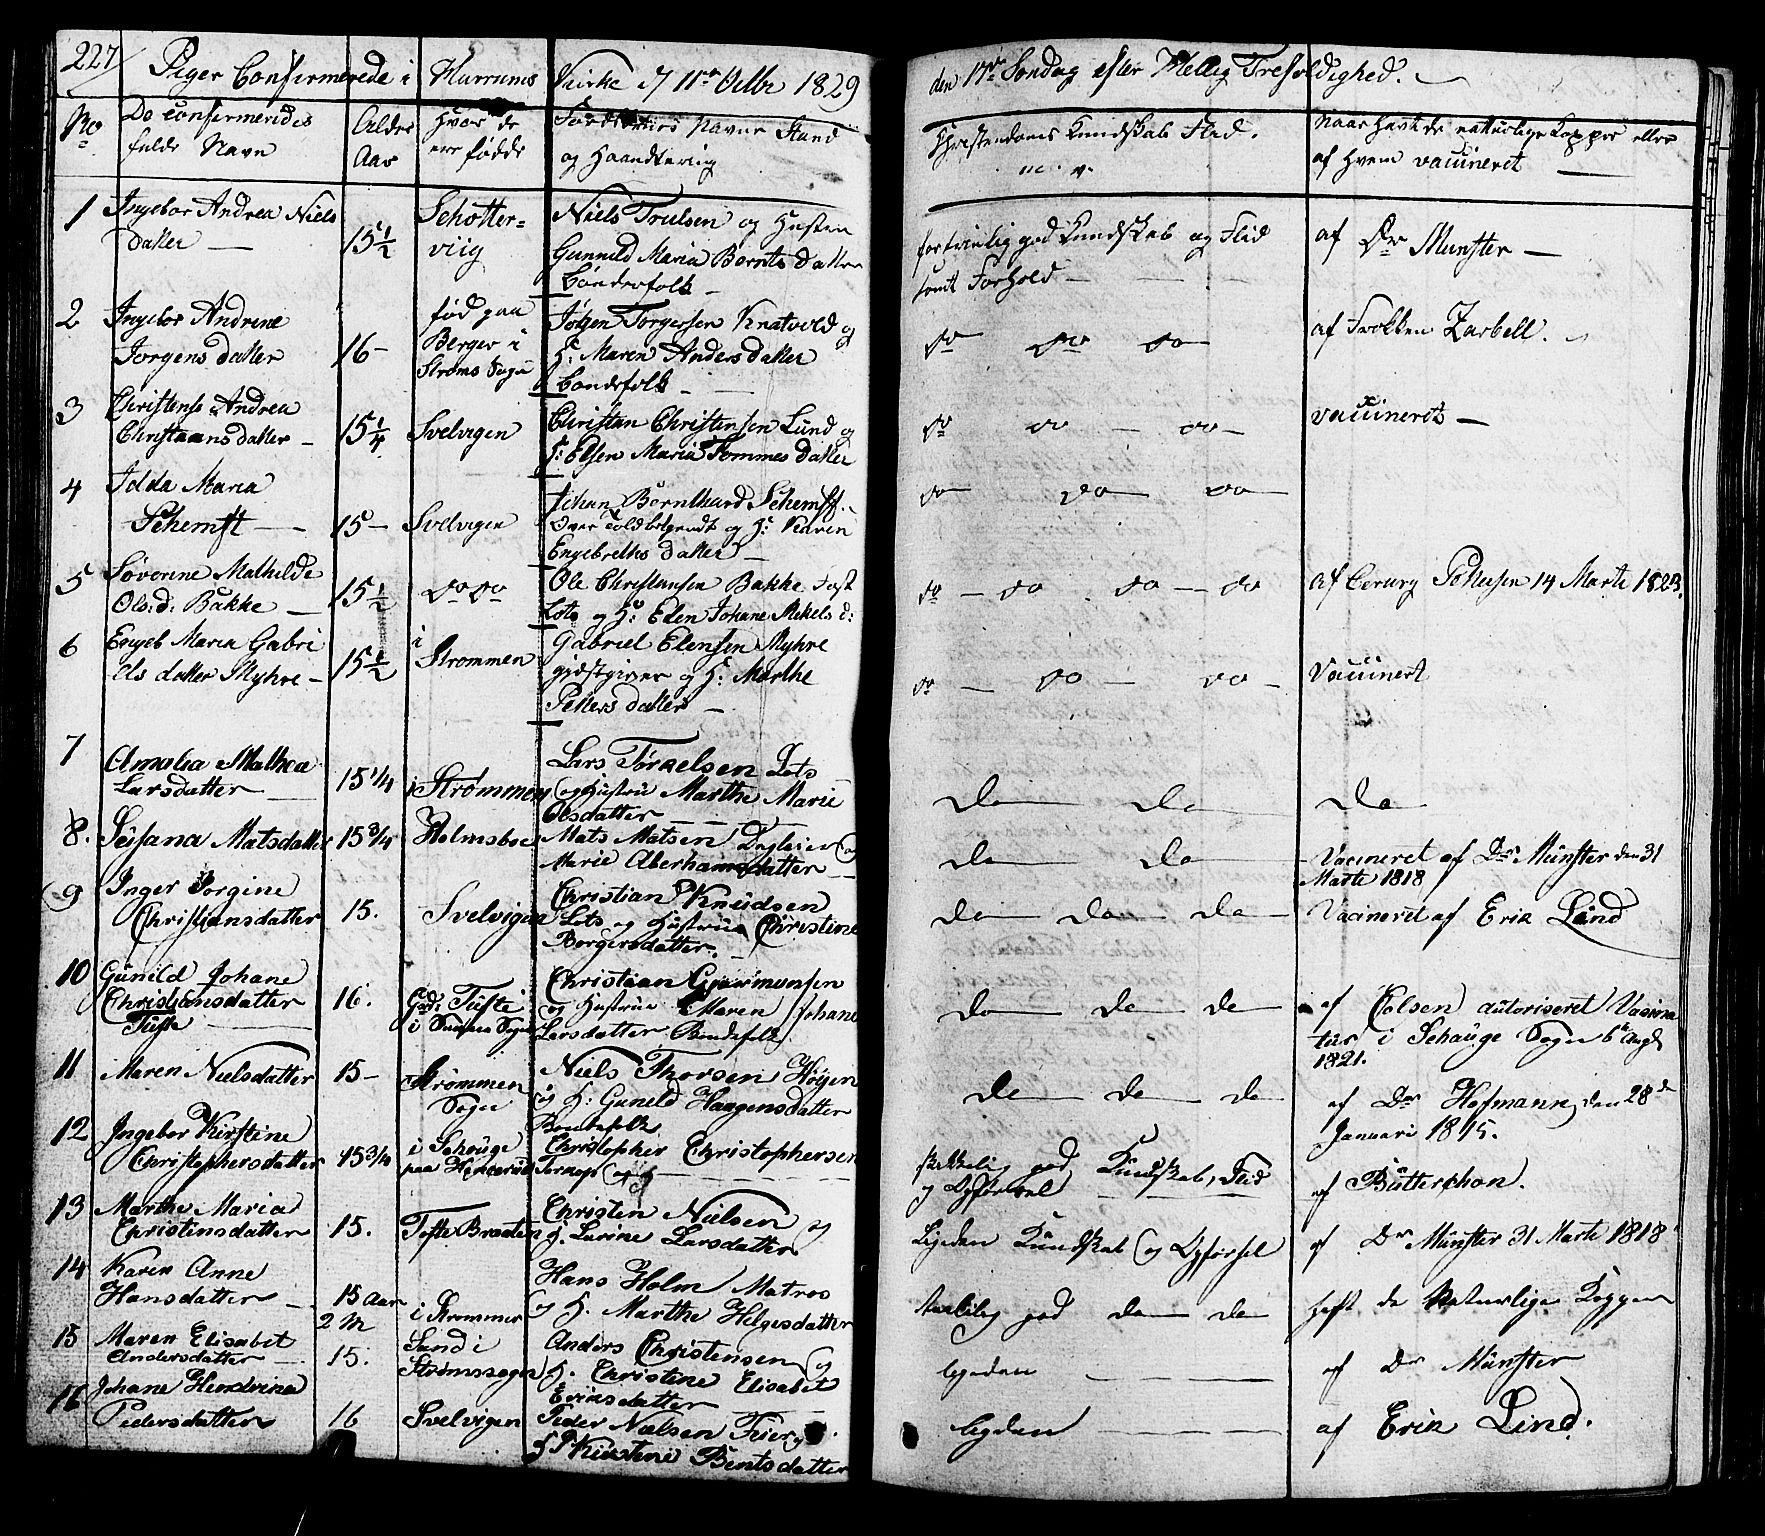 227
Piger Confirmerede i Hurrums Kirke d 11te Octbr 1829
No
De Confirmeredes
fulde Navn
Alder
Aar
Hvor de
ere fødde
Navne Stand
og Haandtering
1
Ingebor Andrea Niels
datter
15 1/2
Schotter-
viig
Niels Trulsen og Hustru
Gunnild Maria Bernts datter
bønderfolk
2
Ingebor Andrine
Jorgens datter
16
fød paa
Berger i
Strøms Sogn
Jørgen Torgersen Knatvold og
H: Maren Anders datter
bondefolk
3
Christense Andrea
Christians datter
15 1/4
Svelvigen
Christian Christensen Lund og
H: Elsen Maria Tommes datter
4
Idda Maria
Schemft
15
Svelvigen
Johan Bernthard Schemft
Over toldbetjendt og H: Karen
Engebreths datter
5
Søverine Mathilde
Ols:d: Bakke
15 1/2
do do
Ole Christiansen Bakke fast
Lots og H: Elen Johane Mikels d:
6
Engeb Maria Gabri
els datter Myhre
15 1/2
i
Strømmen
Gabriel Elensen Myhre
gjæstgiver og H: Marthe
Petters datter
7
Amalia Mathea
Larsdatter
15 1/4
i Strømmen
Lars Torkelsen Lots
og Hustru Marthe Marie
Olsdatter
8.
Susana Matsdatter
15 3/4
Holmsboe
Mats Matsen Dagleier og
Marie Aberhamsdatter
9
Inger Jorgine
Christiansdatter
15.
Svelvigen
Christian Knudsen
Lots og Hustrue Christine
Borgersdatter.
10
Gunild Johane
Christiansdatter
Tufte
16.
Gd: Tufte
i Sogn
Christian
og Hustrue Maren Johane
Larsdatter Bondefolk
11
Maren Nielsdatter
15
Strømmen
Sogn
Niels Thorsen Høyen
og H: Gunild Haagensdatter
Bondefolk
12
Ingebor Kirstine
Christophersdatter
15 3/4
i Schouge
paa
Christopher Christophersen
Tornop og
13
Marthe Maria
Christensdatter
15.
Tofte Braaten
Christen Nielsen og
H. Larine Larsdatter
14
Karen Anne
Hansdatter
15 Aar
2 M
i Strømmen
Hans Holm Matros
og H. Marthe Helgesdatter
15
Maren Elisabet
Andersdatter
15.
Sand i
Strømssogn
Anders Christensen og
H. Christine Elisabet
Eriksdatter
16
Johane Hendrina
Pedersdatter
16
Svelvigen
Peder Nielsen Fier og
H Kirstine Bentsdatter
den 17de Søndag efter Hellig Trefoldighed.
Christendoms Kundskab Flid.
m. v.
Naar havt de naturlige Kopper eller
af hvem vaccineret
fortrinlig god Kundskab og Flid
samt Forhold
af Dr Munster
do do do
af Frøkken Zarbell.
do do do
vaccineret
do do do
do do do do
af Cerurg Johnsen 14 Marti 1823.
do do do
Vaccinert
do do do
do do
Vacineret af Dr. Münster den 31
Marti 1818
do do do
Vacineret af Erik Lind
do do do
af Colsen autoriseret Vacina
tør i Schauge Sogn 6te Augt
1821.
do do do
af Dr Hofmann den 28de
Januari 1815.
skikkelig god Kundskab, Flid
og Opførsel
af Butterphon.
Ligeden Kundskab og Opførsel
af Dr Münster 31 Marti 1818
temelig god do do
haft de Naturlige Kopper
ligeden
af Dr Münster
ligeden
af Erik Lind.